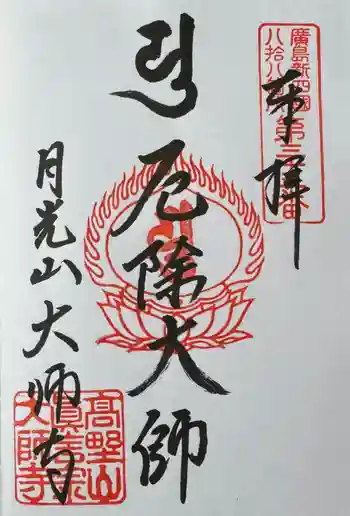 奉拝
廣島新四國
八拾八ヶ所
第三
番
厄除大師
月光山大師寺
高野山
真言宗
大師寺